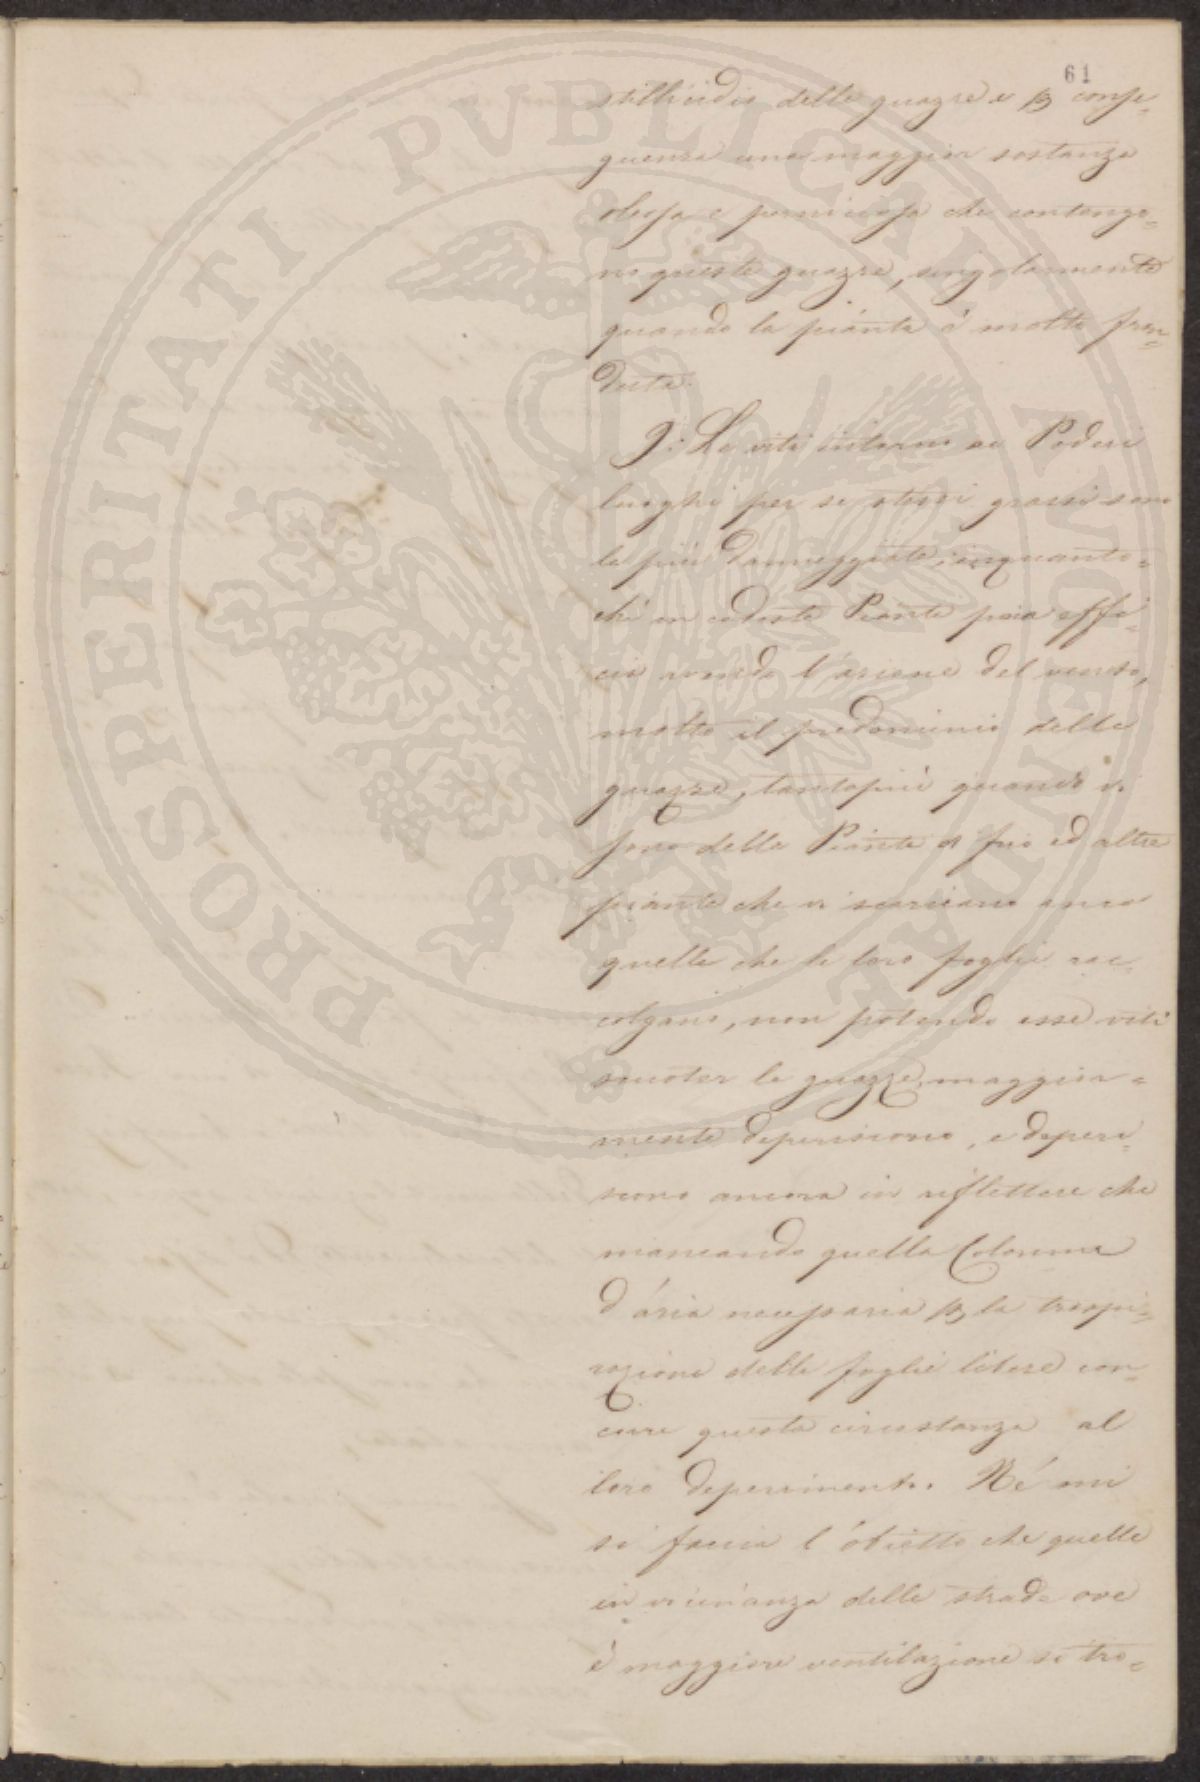 61
stillicidio delle guazze e p conse=
guenza una maggior sostanza
oleosa e perniciosa che contengo=
no queste guazze, singolarmente
quando la pianta è molto fron=
duta.
9: Le viti intorno ai Poderi
luoghi per se stessi grassi sono
le più danneggiate; inquanto=
ché in codeste Piante poco effi=
cio avendo l'azione del vento,
molto il predominio delle
guazze, tantopiù quando vi
sono delle Piante di frio ed altre
piante che vi scaricano anco
quelle che le loro foglie rac=
colgano, non potendo esse viti
scuoter le guazze maggior=
mente deperiscono, e deperi=
scono ancora in riflettere che
mancando quella Colonna
d'aria necessaria p la traspi=
razione delle foglie litese con=
corre questa circostanza al
loro deperimento. Né mi
si faccia l'obietto che quelle
in vicinanza delle strade ove
è maggiore ventilazione si tro=
PROSPERITATI PVBLICAE AVGENDAE